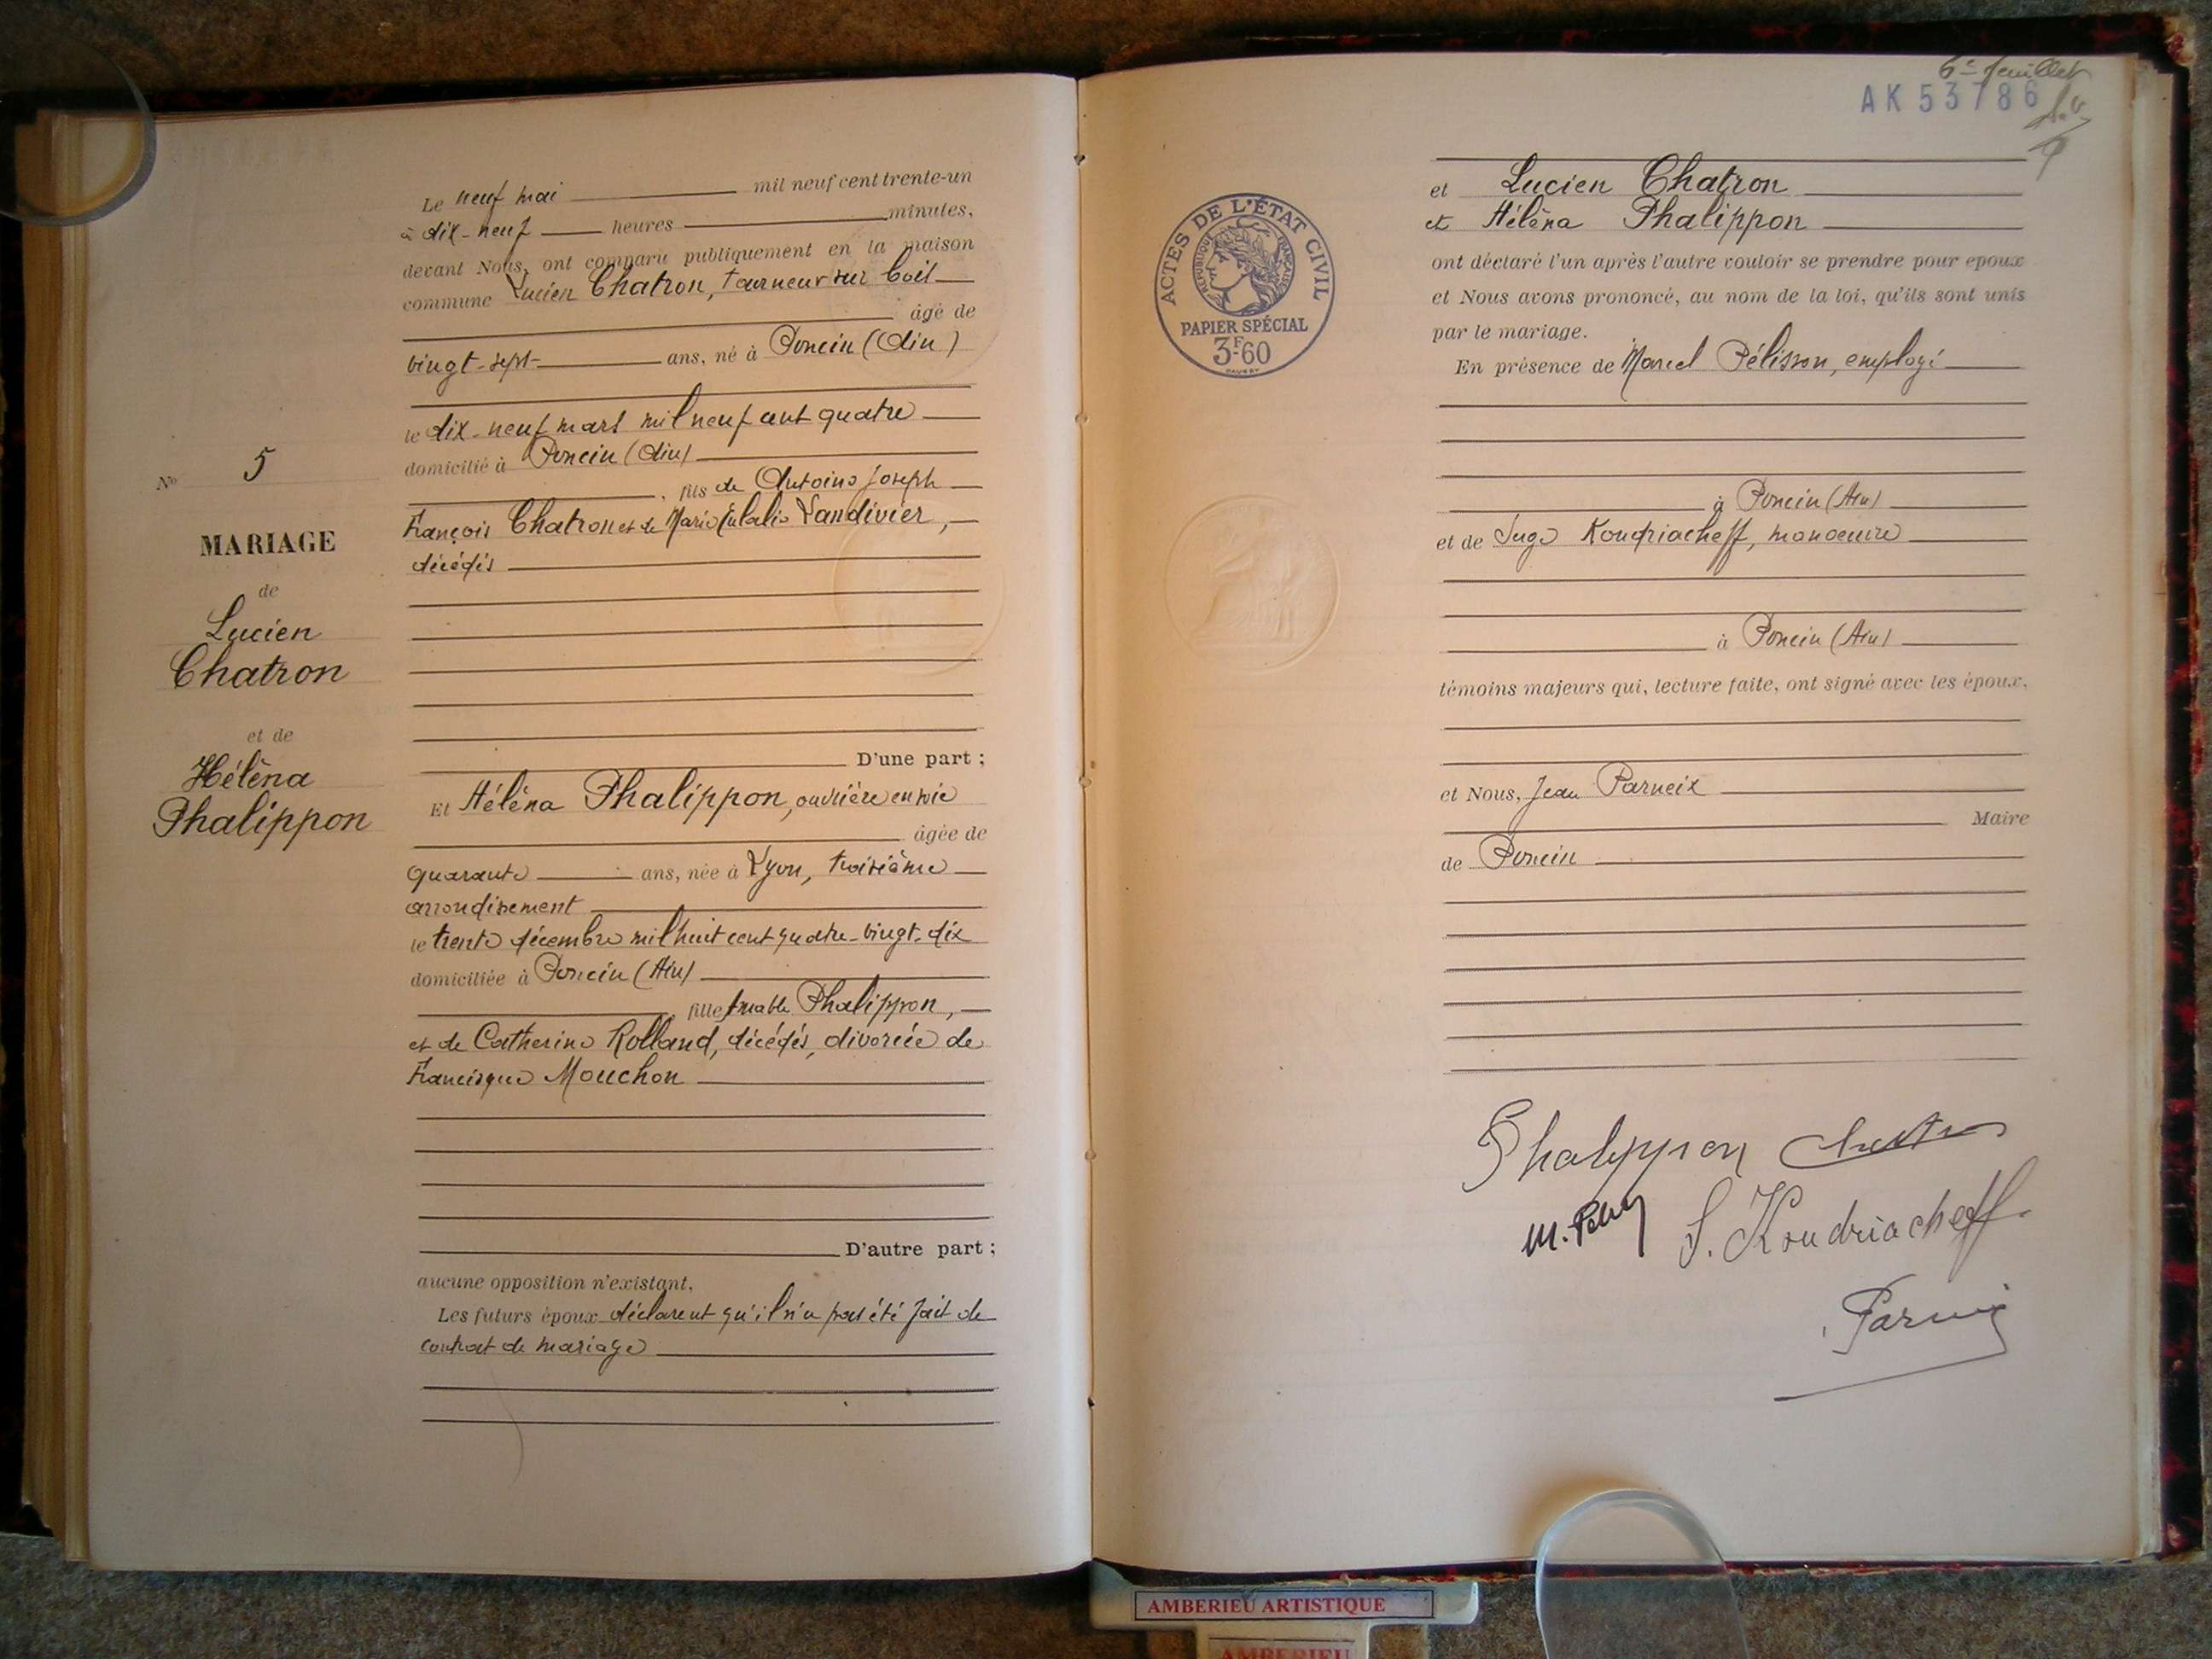 Le neuf mai mil neuf cent trente-un
à dix-neuf heures minutes,
devant Nous, ont comparu publiquement en la maison
commune Lucien Chatron, tourneur sur bois
âgé de
vingt-sept ans, né à Poncin (Ain)
le dix-neuf mars mil neuf cent quatre
domicilié à Poncin (Ain)
, fils de Antoine Joseph
François Chatron et de Marie Eulalie Vandivier,
décédés
D'une part ;
Et Héléna Phalippon, ouvrière en soie
âgée de
quarante ans, née à Lyon, troisième
arrondissement
le trente décembre mil huit cent quatre-vingt-dix
domiciliée à Poncin (Ain)
, fille Phalippon,
et de Catherine Rolland, décédés, divorcée de
Francisque Mouchon
D'autre part ;
aucune opposition n'existant,
Les futurs époux déclarent qu'il n'a pas été fait de
contrat de mariage
No 5
MARIAGE
de
Lucien
Chatron
et de
Héléna
Phalippon
6e feuillet
AK 53786
ACTES DE L'ÉTAT CIVIL
RÉPUBLIQUE FRANÇAISE
PAPIER SPÉCIAL
3F60
et Lucien Chatron
et Héléna Phalippon
ont déclaré l'un après l'autre vouloir se prendre pour époux
et Nous avons prononcé, au nom de la loi, qu'ils sont unis
par le mariage.
En présence de Marcel Pélisson, employé
à Poncin (Ain)
et de Serge Koudriacheff, manoeuvre
à Poncin (Ain)
témoins majeurs qui, lecture faite, ont signé avec les époux,
et Nous, Jean Parneix
Maire
de Poncin
Phalippon Chatron
M. S. Koudriacheff
Parneix
AMBERIEU ARTISTIQUE
AMBERIEU